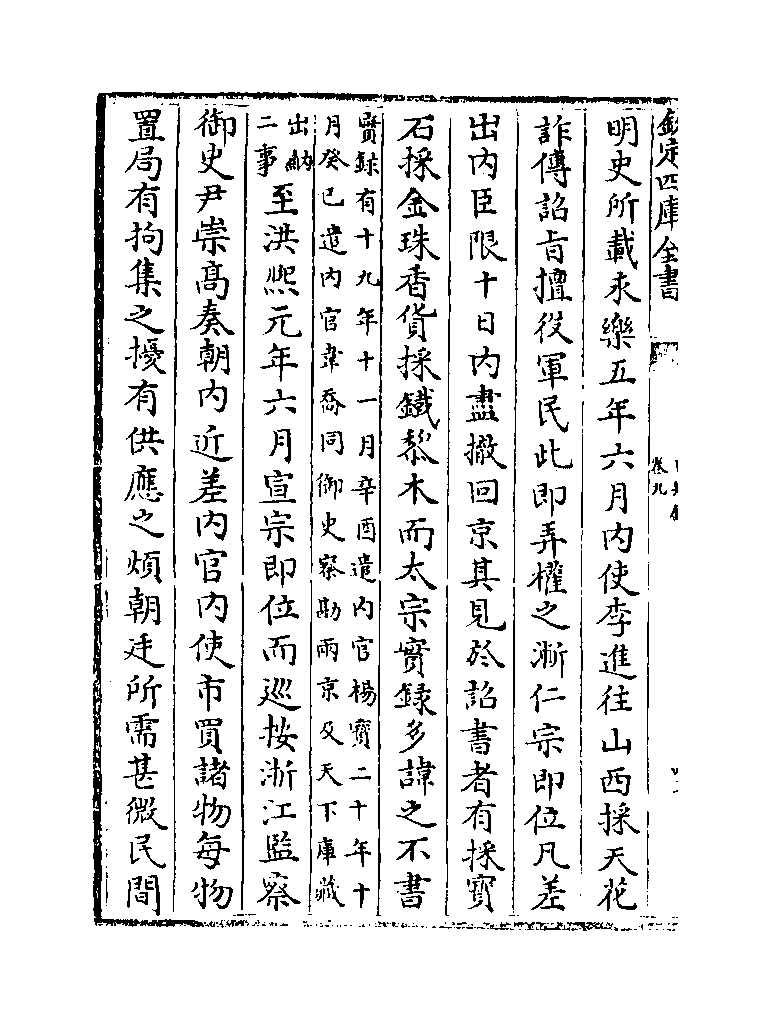 欽定四庫全書
卷九
明史所載永樂五年六月内使李進往山西採天花
詐傳詔旨擅役軍民此即弄權之漸仁宗即位凡差
出内臣限十日内盡撤回京其見於詔書者有採寶
石採金珠香貨採鐵棃木而太宗實録多諱之不書
實録有十九年十一月辛酉遣内官楊寳二十年十
月癸已遣内官韋喬同御史察勘兩京及天下庫藏
出納
二事
至洪熙元年六月宣宗即位而巡按浙江監察
御史尹崇髙奏朝内近差内官内使市買諸物每物
置局有拘集之擾有供應之煩朝廷所需甚微民間